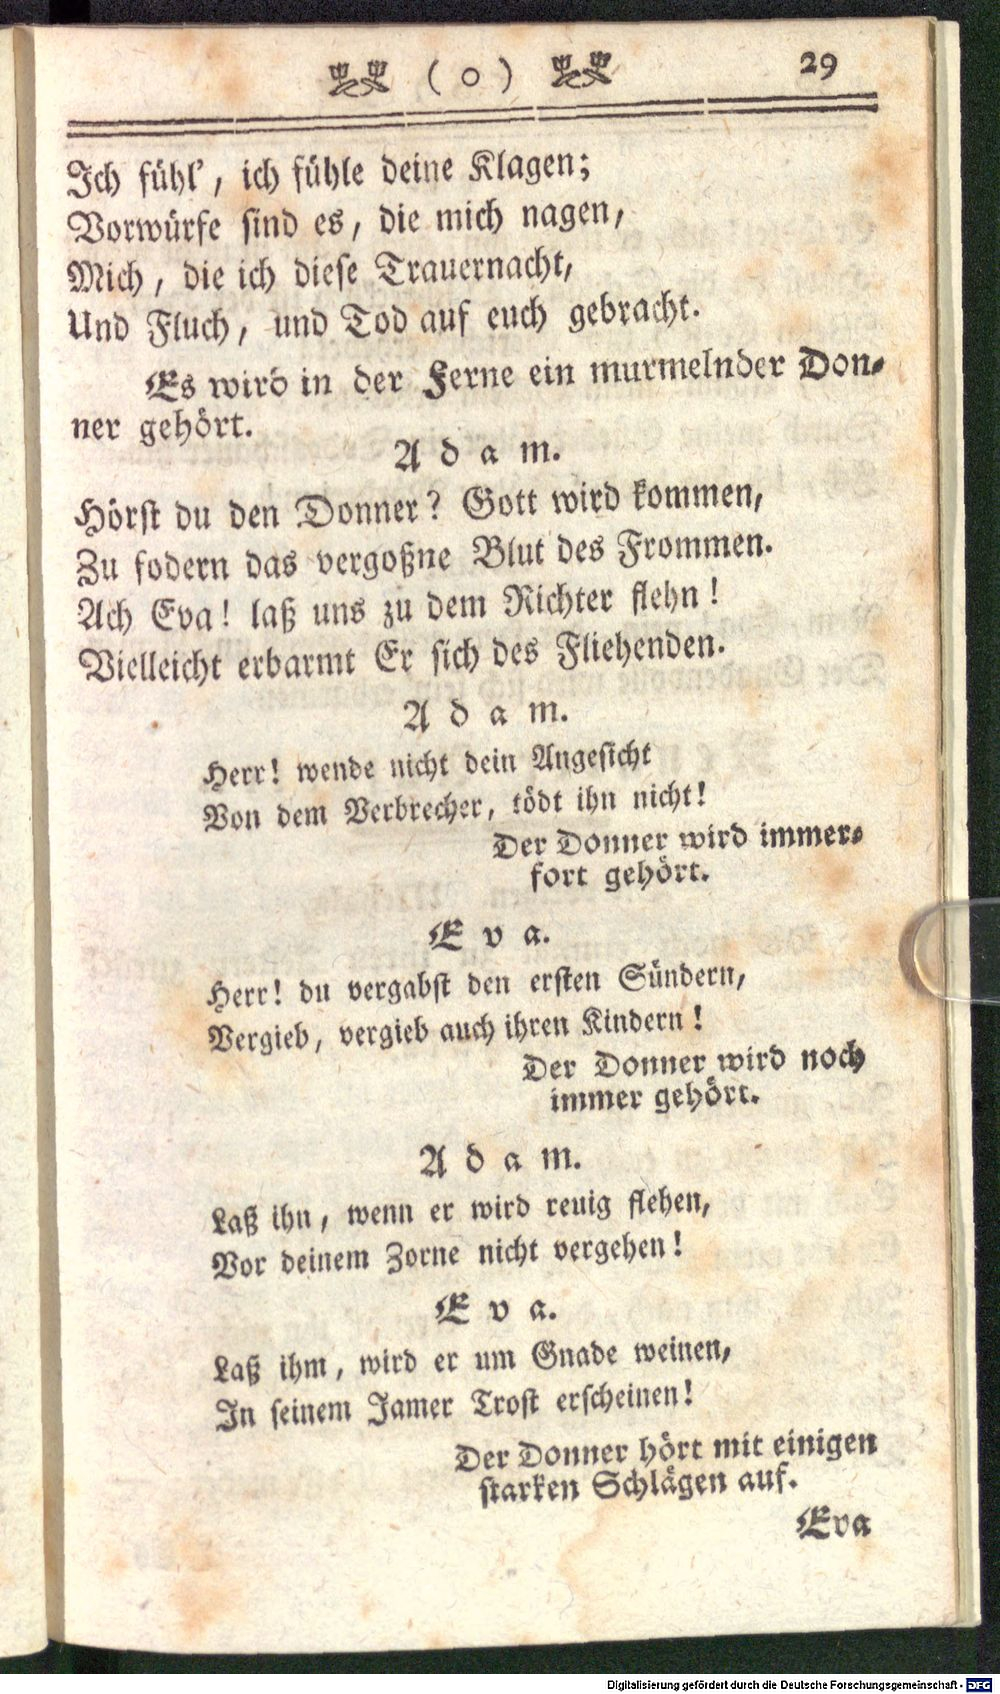 ( o ) 29
Ich fühl', ich fühle deine Klagen;
Vorwürfe sind es, die mich nagen,
Mich, die ich diese Trauernacht,
Und Fluch, und Tod auf euch gebracht.
Es wird in der Ferne ein murmelnder Don-
ner gehört.
Adam.
Hörst du den Donner? Gott wird kommen,
Zu fodern das vergoßne Blut des Frommen.
Ach Eva! laß uns zu dem Richter flehn!
Vielleicht erbarmt Er sich des Fliehenden.
Adam.
Herr! wende nicht dein Angesicht
Von dem Verbrecher, tödt ihn nicht!
Der Donner wird immer-
fort gehört.
Eva.
Herr! du vergabst den ersten Sündern,
Vergieb, vergieb auch ihren Kindern!
Der Donner wird noch
immer gehört.
Adam.
Laß ihn, wenn er wird reuig flehen,
Vor deinem Zorne nicht vergehen!
Eva.
Laß ihm, wird er um Gnade weinen,
In seinem Jamer Trost erscheinen!
Der Donner hört mit einigen
starken Schlägen auf.
Eva
Digitalisierung gefördert durch die Deutsche Forschungsgemeinschaft - DFG